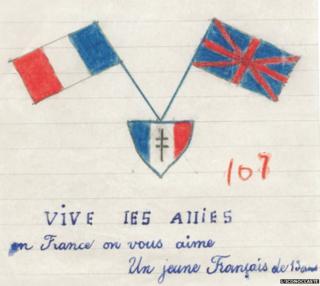 107
VIVE lES AllIES
en France on vous aime
Un jeune Français de 13 ans
L'ICONOCLASTE